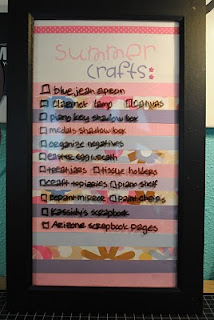 summer
crafts:
blue jean apron
clarinet lamp canvas
piano key shadow box
medals shadow box
organize negatives
easter egg wreath
treat jars tissue holders
craft topiaries piano shelf
repaint mirror paint chips
Kassidy's scrapbook
Arizona scrapbook pages